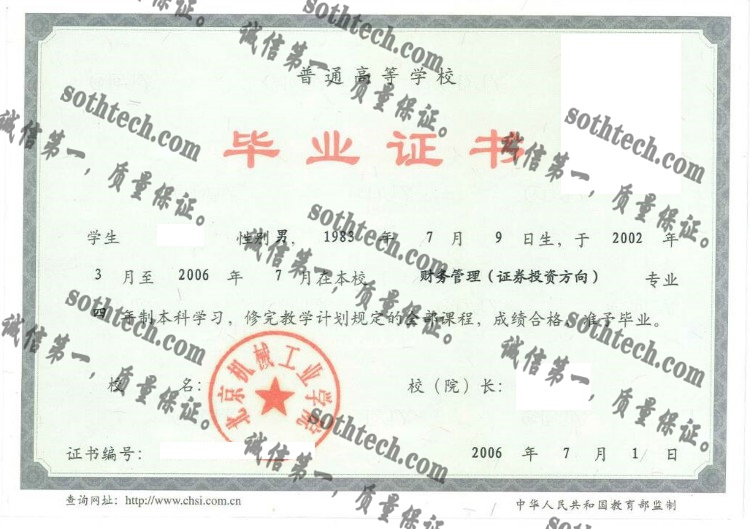 普通高等学校
毕业证书
学生 性别 男，1983 年 7 月 9 日生，于 2002 年
3 月至 2006 年 7 月在本校 财务管理（证券投资方向） 专业
四 年制本科学习，修完教学计划规定的全部课程，成绩合格，准予毕业。
校 名： 校（院）长：
北京机械工业学院
证书编号： 2006 年 7 月 1 日
查询网址：http://www.chsi.com.cn 中华人民共和国教育部监制
sothtech.com
诚信第一，质量保证。
sothtech.com
诚信第一，质量保证。
sothtech.com
诚信第一，质量保证。
sothtech.com
诚信第一，质量保证。
sothtech.com
诚信第一，质量保证。
sothtech.com
诚信第一，质量保证。
sothtech.com
诚信第一，质量保证。